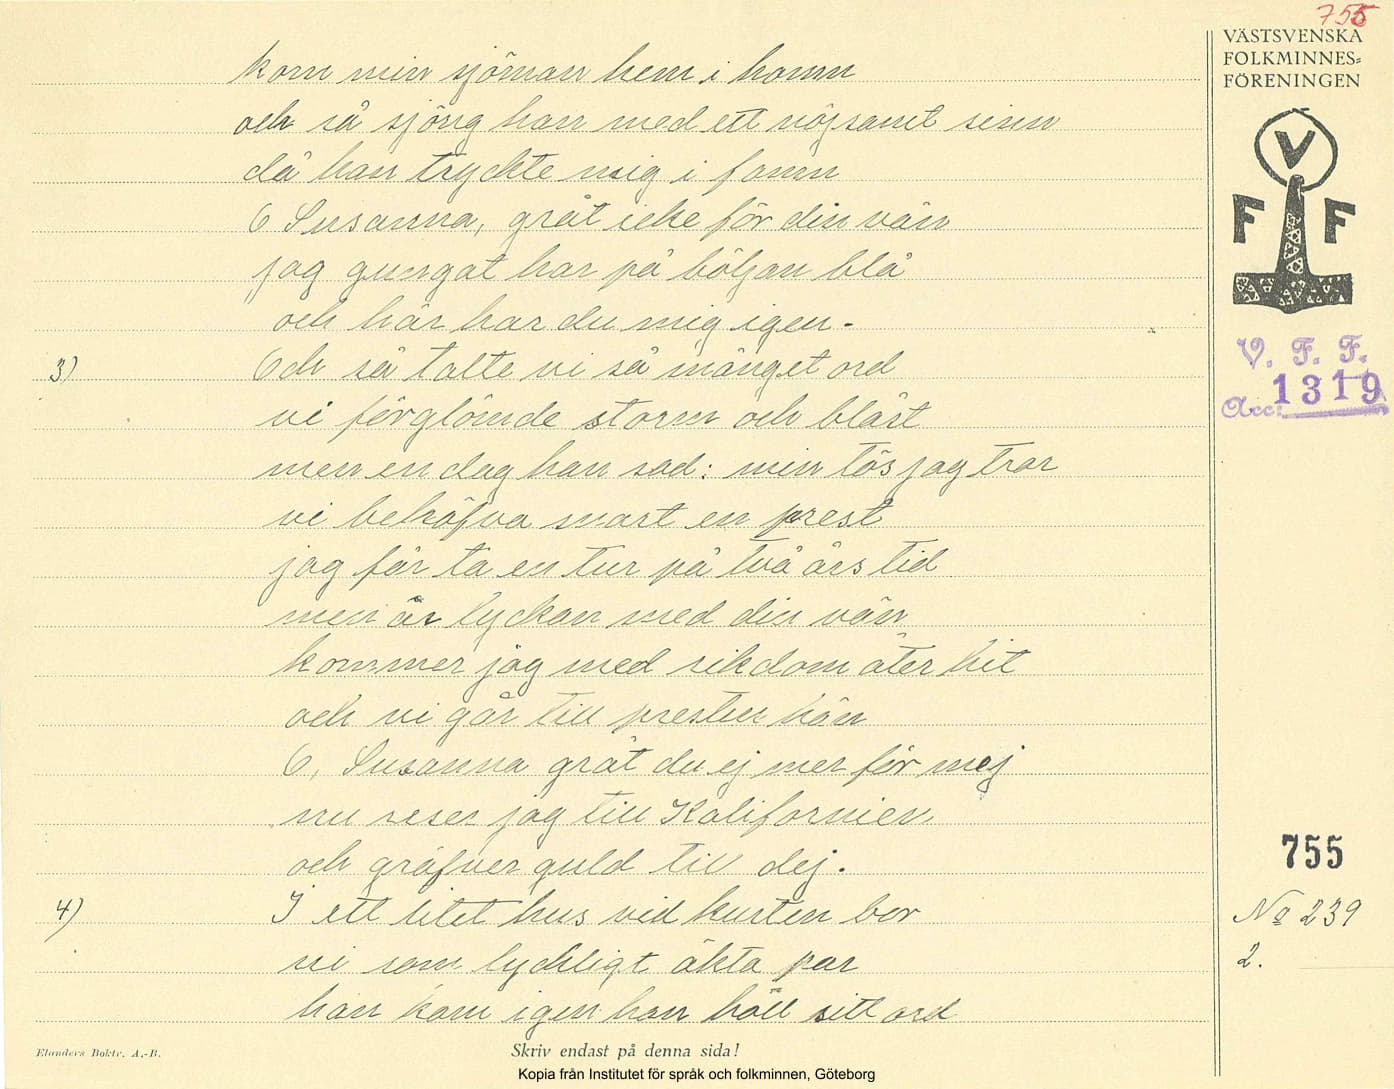 755
VÄSTSVENSKA
FOLKMINNES=
FÖRENINGEN
V
F F
V. F. F.
Acc: 1319
kom min sjöman hem i hamn
och så sjöng han med ett nöjsamt sinn
då han tryckte mig i famn
O Susanna, gråt icke för din vän
jag gungat har på böljan blå
och här har du mig igen.
3) Och så talte vi så månget ord
vi förglömde storm och blåst
men en dag han sad: min tös jag trar
vi behöfva snart en prest
jag får ta en tur på två års tid
men är lyckan med din vän
kommer jag med rikdom åter hit
och vi går till presten hän
O, Susanna gråt du ej mer för mej
nu reser jag till Kalifornien
och gräfver guld till dej.
4) I ett litet hus vid kusten bor
vi som lyckligt äkta par
han kom igen han höll sitt ord
755
No 239
2.
Elanders Boktr. A.-B.
Skriv endast på denna sida!
Kopia från Institutet för språk och folkminnen, Göteborg